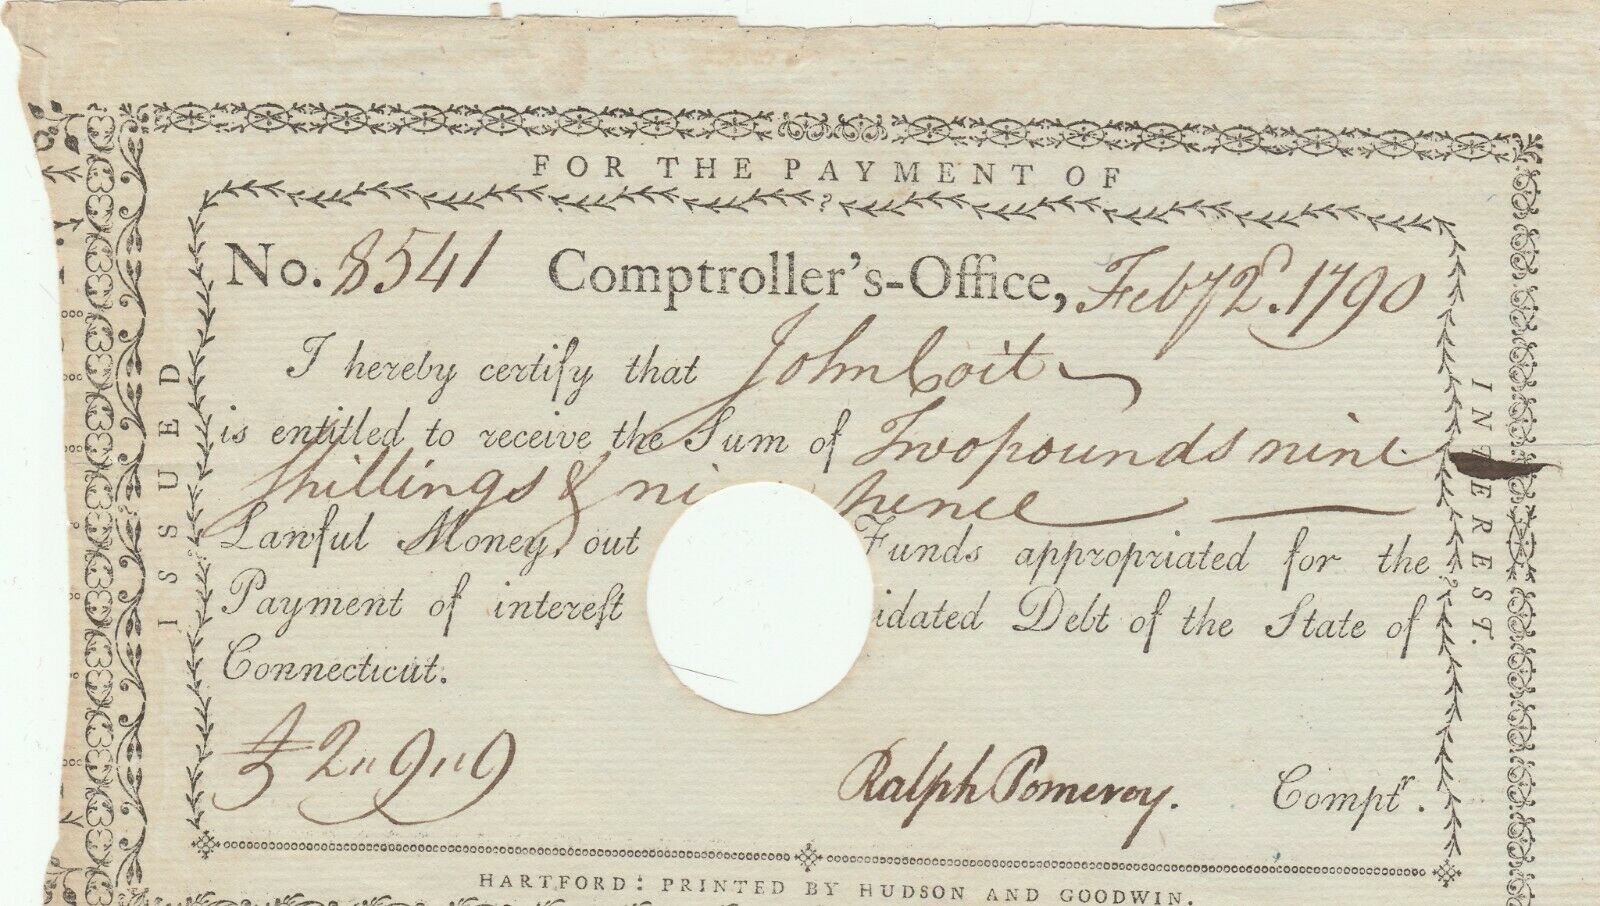 FOR THE PAYMENT OF
ISSUED
INTEREST.
No. 8541 Comptroller's-Office, Feby 2d. 1790
I hereby certify that John Coit
is entitled to receive the Sum of Two pounds nine
shillings & ni pence
Lawful Money, out Funds appropriated for the
Payment of interest idated Debt of the State of
Connecticut.
£2"9"9
Ralph Pomeroy. Comptr.
HARTFORD: PRINTED BY HUDSON AND GOODWIN.